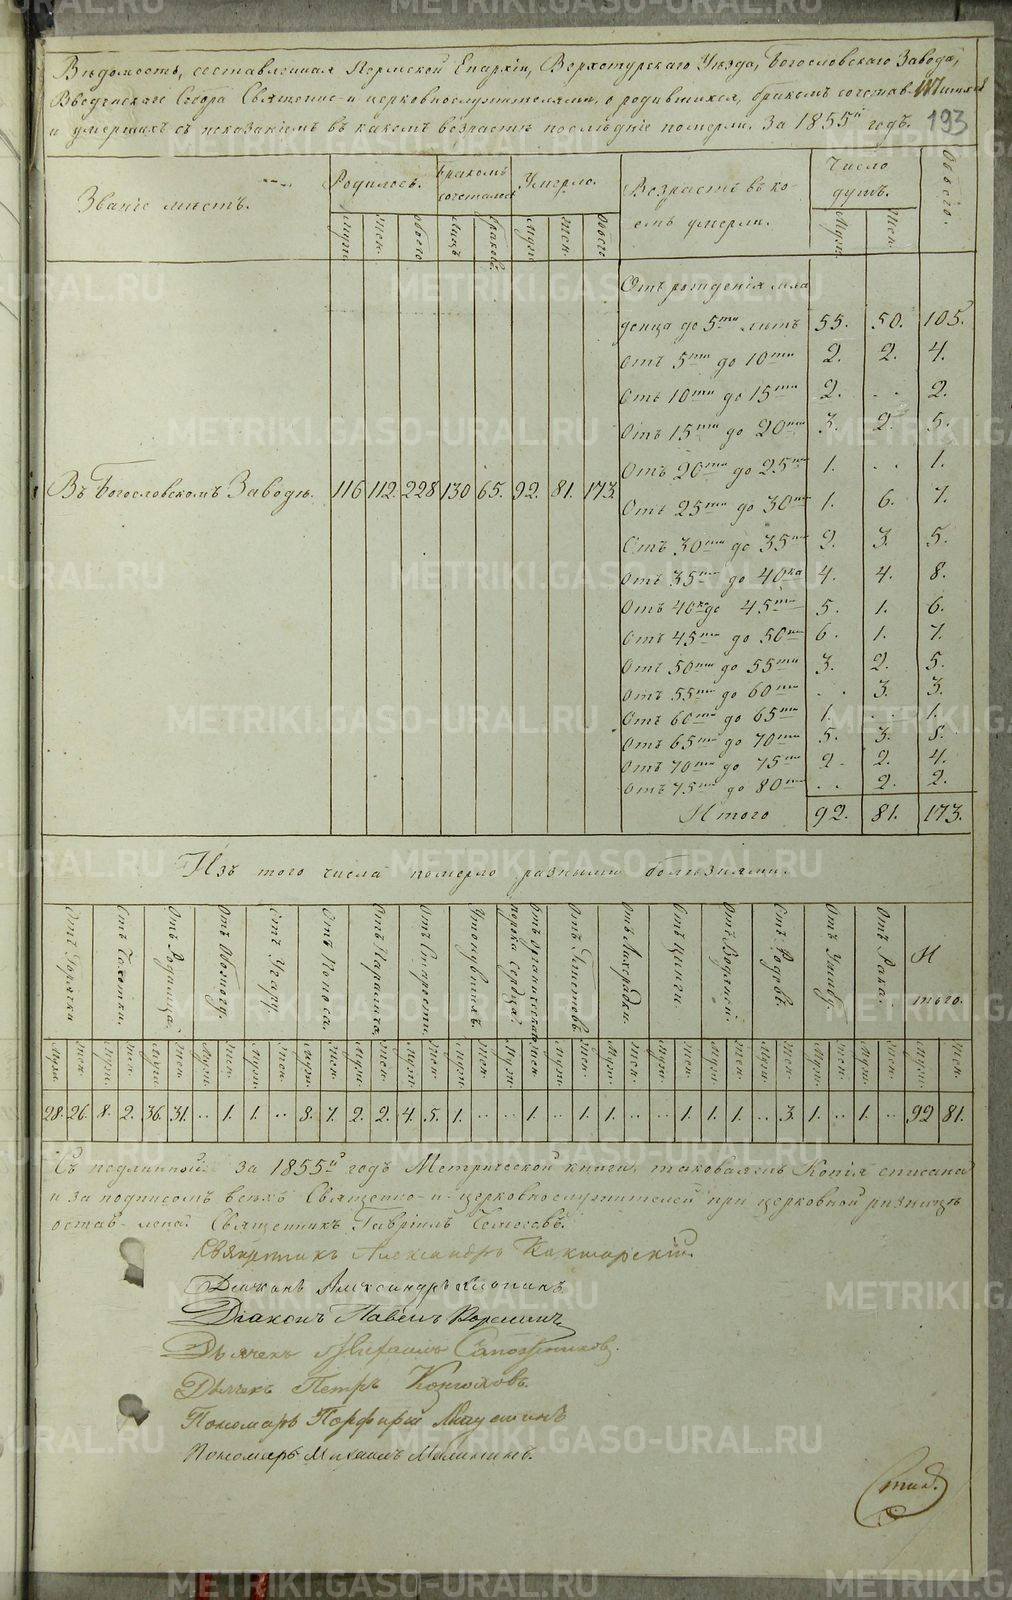 Вѣдомость, составленная Пермской Епархіи, Верхотурскаго Уѣзда, Богословскаго Завода,
Введенскаго Собора Священно- и церковнослужителями, о родившихся, бракомъ сочетав-шихся
и умершихъ съ показаніемъ въ какомъ возрастѣ послѣдніе померли. За 1855й годъ. 193
Званіе мѣстъ. Родилось. Бракомъ сочеталось Умерло. Возрастъ въ ко-емъ умерли. Число душъ. Обоего.
Муж. Жен. Обоего Лицъ Браковъ. Муж. Жен. Обоего Муж. Жен.
Въ Богословскомъ Заводѣ. 116 112. 228 130 65. 92. 81. 173.
Отъ рожденія мла
денца до 5ти лѣтъ 55. 50. 105.
Отъ 5ти до 10ти 2. 2. 4.
Отъ 10ти до 15ти 2. . . 2.
Отъ 15ти до 20ти 3. 2. 5.
Отъ 20ти до 25ти 1. . . 1.
Отъ 25ти до 30ти 1. 6. 7.
Отъ 30ти до 35ти 2. 3. 5.
Отъ 35ти до 40ка 4. 4. 8.
Отъ 40ка до 45ти 5. 1. 6.
Отъ 45ти до 50ти 6. 1. 7.
Отъ 50ти до 55ти 3. 2. 5.
Отъ 55ти до 60ти . . 3. 3.
Отъ 60ти до 65ти 1. . . 1.
Отъ 65ти до 70ти 5. 3. 8.
Отъ 70ти до 75ти 2. 2. 4.
Отъ 75ти до 80ти . . 2. 2.
Итого 92. 81. 173.
Изъ того числа померло разными болѣзнями.
Отъ Горячки Отъ Чахотки. Отъ Родимца. Отъ Обжогу. Отъ Угару. Отъ Поноса. Отъ Паралича. Отъ Старости. Утонувшихъ. Отъ органическаго порока сердца. Отъ Глистовъ. Отъ Лихорадки. Отъ Цинги Отъ Водянки. Отъ Родовъ. Отъ Ушибу. Отъ Рака. Итого.
Муж. Жен. Муж. Жен. Муж. Жен. Муж. Жен. Муж. Жен. Муж. Жен. Муж. Жен. Муж. Жен. Муж. Жен. Муж. Жен. Муж. Жен. Муж. Жен. Муж. Жен. Муж. Жен. Муж. Жен. Муж. Жен. Муж. Жен. Муж. Жен.
28. 26. 8. 2. 36. 31. .. 1. 1. .. 8. 7. 2. 2. 4. 5. 1. .. .. 1. .. 1. 1. .. .. 1. 1. 1. .. 3. 1. .. 1. .. 92 81.
Съ подлинной за 1855й годъ Метрической книги, таковаямъ Копія списана
и за подписомъ всѣхъ Священно- и церковнослужителей при церковной ризницѣ
остав-лена. Священникъ Гавріилъ
Священникъ Александръ
Діаконъ Александръ
Діаконъ Павелъ
Дьячекъ Сапожниковъ.
Дьячекъ Петръ Конюховъ.
Пономарь Порфирій
Пономарь Михаилъ
METRIKI.GASO-URAL.RU